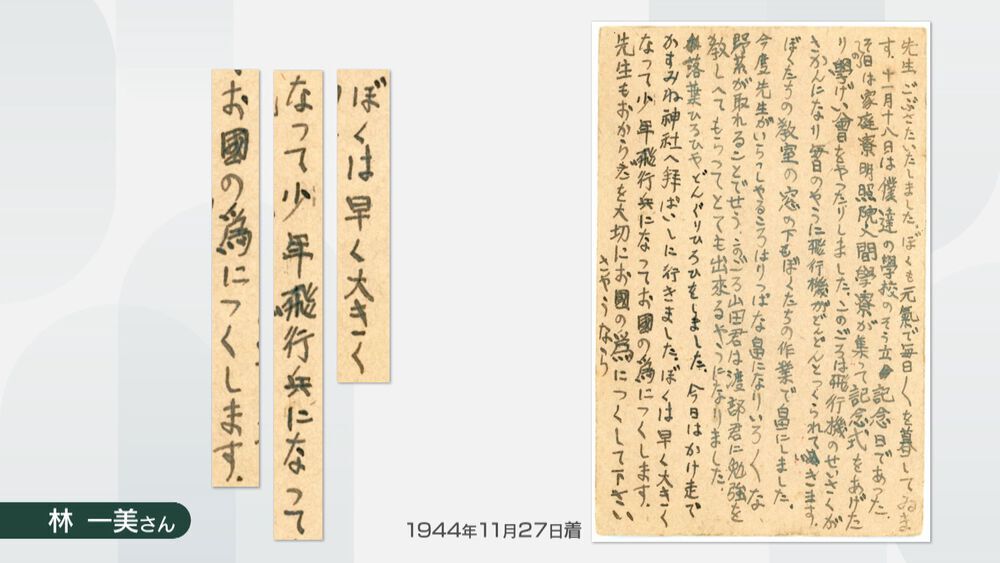 ぼくは早く大きく
なって少年飛行兵になって
お國の為につくします。
林 一美さん
1944年11月27日着
先生、ごぶさたいたしました。ぼくも元氣で毎日〱を暮してゐま
す。十一月十八日は僕達の學校のそう立記念日であった。
その日は家庭寮明照院人間學寮が集って記念式をあげた
り學げい會をやったりしました。このごろは飛行機のせいさくが
さかんになり毎日のやうに飛行機がどんどんとつくられて
ぼくたちの教室の窓の下もぼくたちの作業で畠にしました。
今度先生がいらっしゃるころはりっぱな畠になりいろ〱な
野菜が取れることでせう。このごろ山田君は渡部君に勉強を
教しへてもらってとても出來るやうになりました。
落葉ひろひやどんぐりひろひをしました。今日はかけ走で
かすみね神社へ拝ぱいしに行きました。ぼくは早く大きく
なって少年飛行兵になってお國の為につくします。
先生もおからだを大切にお國の為につくして下さい
さやうなら